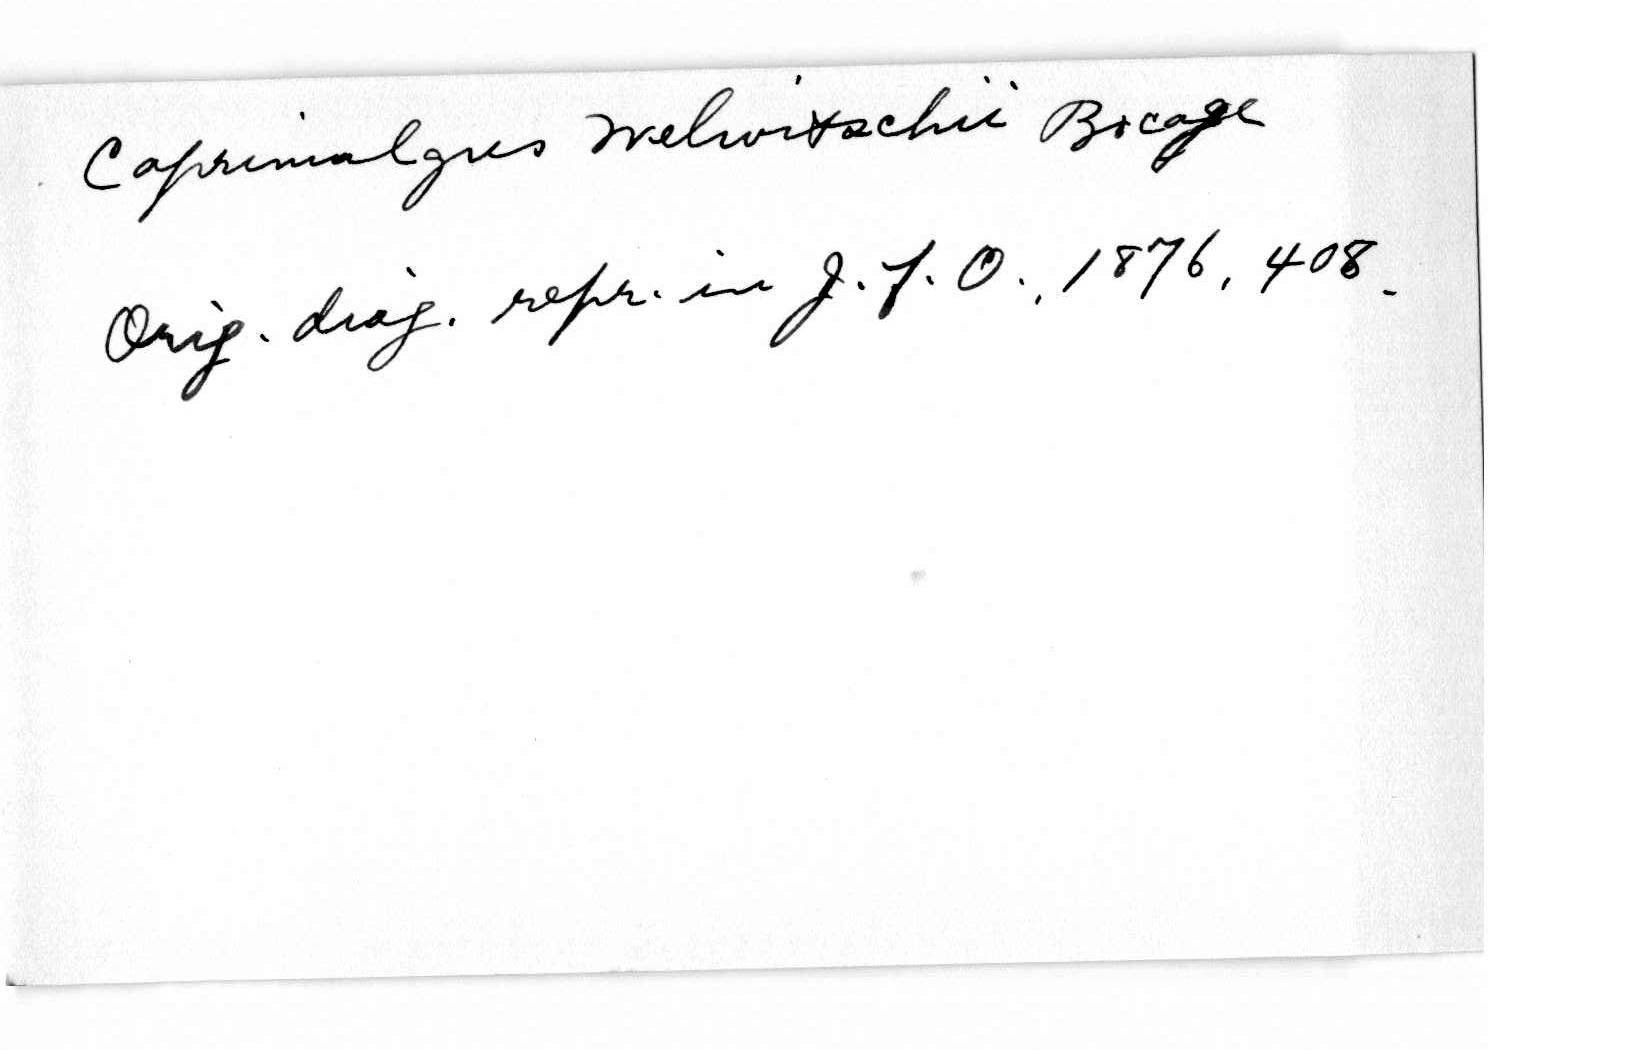 Caprimulgus Welwitschii Bocage
Orig. diag. repr. in J. f. O., 1876, 408.